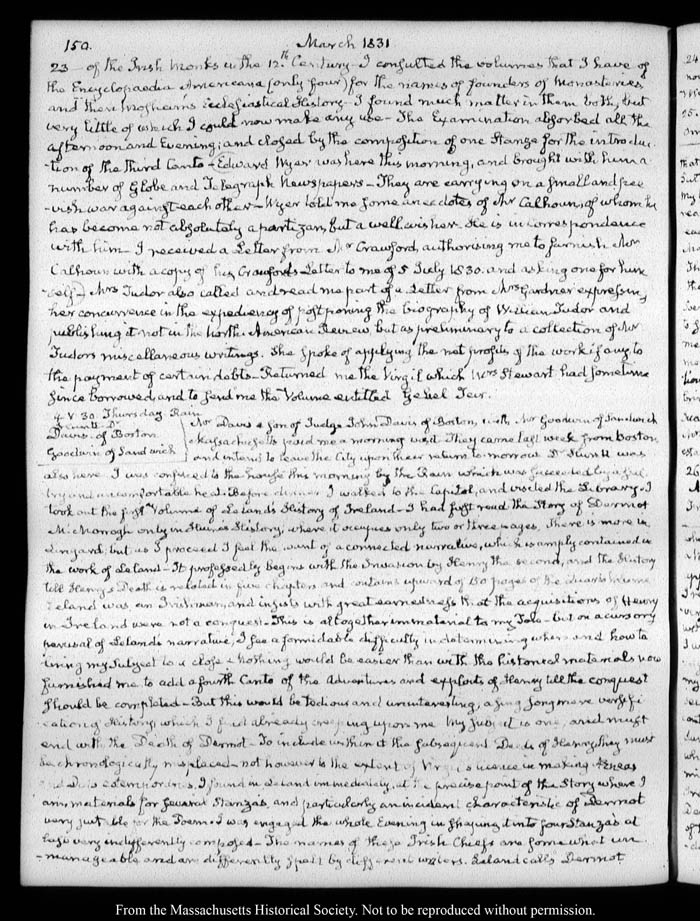 150.
March 1831
23 — of the Irish Monks in the 12th Century — I consulted the volumes that I have of
the Encyclopaedia Americana (only four) for the names of founders of Monasteries
and then Mosheim's Ecclesiastical History — I found much matter in them both, but
very little of which I could now make any use — The Examination absorbed all the
afternoon and Evening; and closed by the composition of one Stanza for the introduc-
-tion of the third Canto — Edward Wyer was here this morning, and brought with him a
number of Globe and Telegraph Newspapers — They are carrying on a small and pee
-vish war against each other — Wyer told me some anecdotes of Mr Calhoun, of whom he
has become not absolutely a partizan, but a well wisher. He is in correspondence
with him — I received a Letter from Mr Crawford, authorising me to furnish Mr
Calhoun with a copy of his Crawford's Letter to me of 5 July 1830. and asking one for him
self — Mrs Tudor also called and read me part of a Letter from Mrs Gardner expressing
her concurrence in the expediency of postponing the biography of William Tudor and
publishing it not in the North American Review but as preliminary to a collection of Mr
Tudor's miscellaneous writings. She spoke of applying the net profits of the work if any to
the payment of certain debts — Returned me the Virgil which Mrs Stewart had sometime
since borrowed and to send me the Volume entitled Gebel Teir.
24. V. 30. Thursday. Rain
Davis of Boston
Goodwin of Sandwich
Mr Davis a son of Judge John Davis of Boston, with Mr Goodwin of Sandwich
Massachusetts paid me a morning visit. They came last week from Boston
and intend to leave the City upon their return tomorrow. Dr Huntt was
also here. I was confined to the house this morning by the Rain which was succeeded by a sul
try and uncomfortable heat. Before dinner I walked to the Capitol, and visited the Library. I
took out the first Volume of Leland's History of Ireland — I had first read the Story of Dermot
McMorrogh only in Hume's History, where it occupies only two or three pages. There is more in
Lingard, but as I proceed I feel the want of a connected narrative, which is amply contained in
the work of Leland — It professedly begins with the Invasion by Henry the second, and the History
till Henry's Death is related in five chapters and contains upward of 150 pages of the Quarto Volume
Leland was an Irishman, and insists with great earnestness that the acquisitions of Henry
in Ireland were not a conquest. This is altogether immaterial to my Tale — but on a cursory
perusal of Leland's narrative, I see a formidable difficulty in determining where and how to
bring my Subject to a close — Nothing would be easier than with the historical materials now
furnished me to add a fourth Canto of the Adventures and exploits of Henry till the conquest
should be completed — But this would be tedious and uninteresting, a sing song mere versifi
cation of History, which I find already creeping upon me. My Subject is one, and must
end with the Death of Dermot — To include within it the subsequent Deeds of Henry, they must
be chronologically misplaced — not however to the extent of Virgil's licence in making Æneas
and Dido cotemporaries. I found in Leland immediately, at the precise point of the Story where I
am, materials for several Stanzas, and particularly an incident characteristic of Dermot
very suitable for the Poem. I was engaged the whole Evening in shaping it into four Stanzas at
last very indifferently composed — The names of these Irish Chiefs are somewhat un
-manageable and are differently spelt by different writers. Leland calls Dermot
From the Massachusetts Historical Society. Not to be reproduced without permission.